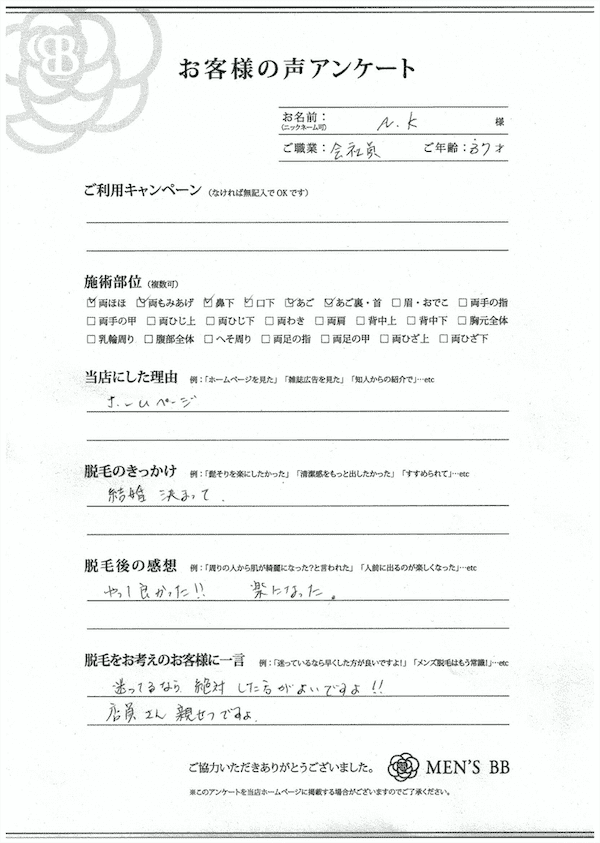 お客様の声アンケート
お名前： N.K 様
（ニックネーム可）
ご職業：会社員 ご年齢：37才
ご利用キャンペーン（なければ無記入でOKです）
施術部位（複数可）
☑両ほほ ☑両もみあげ ☑鼻下 ☑口下 ☑あご ☑あご裏・首 □眉・おでこ □両手の指
□両手の甲 □両ひじ上 □両ひじ下 □両わき □両肩 □背中上 □背中下 □胸元全体
□乳輪周り □腹部全体 □へそ周り □両足の指 □両足の甲 □両ひざ上 □両ひざ下
当店にした理由 例：「ホームページを見た」「雑誌広告を見た」「知人からの紹介で」…etc
ホームページ
脱毛のきっかけ 例：「髭そりを楽にしたかった」「清潔感をもっと出したかった」「すすめられて」…etc
結婚 決まって.
脱毛後の感想 例：「周りの人から肌が綺麗になった？と言われた」「人前に出るのが楽しくなった」…etc
やって良かった!! 楽になった。
脱毛をお考えのお客様に一言 例：「迷っているなら早くした方が良いですよ！」「メンズ脱毛はもう常識！」…etc
迷ってるなら 絶対 した方がよいですよ!!
店員さん 親せつですよ.
ご協力いただきありがとうございました。 MEN'S BB
※このアンケートを当店ホームページに掲載する場合がございますのでご了承ください。